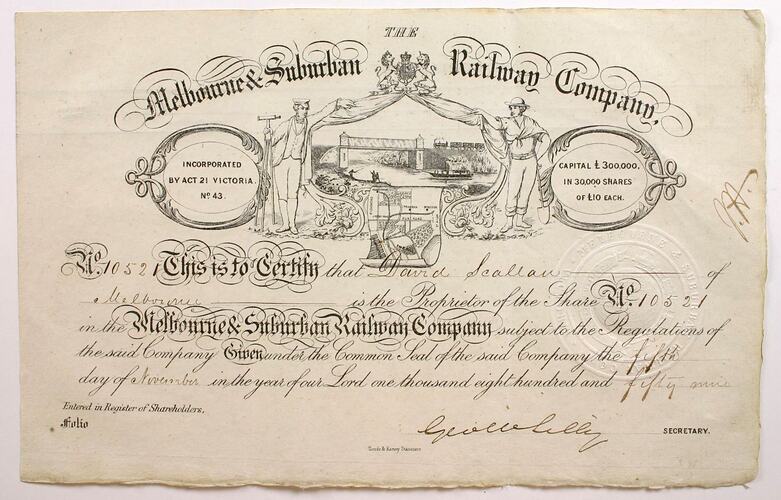 THE
Melbourne & Suburban Railway Company,
INCORPORATED
BY ACT 21 VICTORIA.
No 43.
CAPITAL £300,000,
IN 30,000 SHARES
OF £10 EACH.
No. 10521 This is to Certify that David Scallan of
Melbourne is the Proprietor of the Share No. 10521
in the Melbourne & Suburban Railway Company subject to the Regulations of
the said Company Given under the Common Seal of the said Company the fifth
day of November in the year of our Lord one thousand eight hundred and fifty nine
Entered in Register of Shareholders,
Folio
SECRETARY.